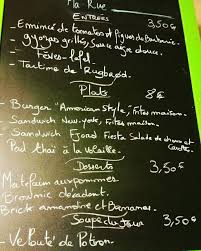 Ma Rue
ENTRÉES 3,50€
- Emincé de Tomates et figues de Barbarie.
- gyozas grillés, sauce aigre douce.
- Fèves-
- Tartine de
Plats 8€
- Burger "American Style", frites maison.
- Sandwich New-York, frites maison.
- Sandwich Fjord Fiesta Salade de choux et carotte.
Pad thaï à la volaille.
Desserts 3,50€
Matefaim aux pommes
Brownie décadent.
Brick amandine et Bananes.
Soupe du Jour 3,50€
- Velouté de Potiron.